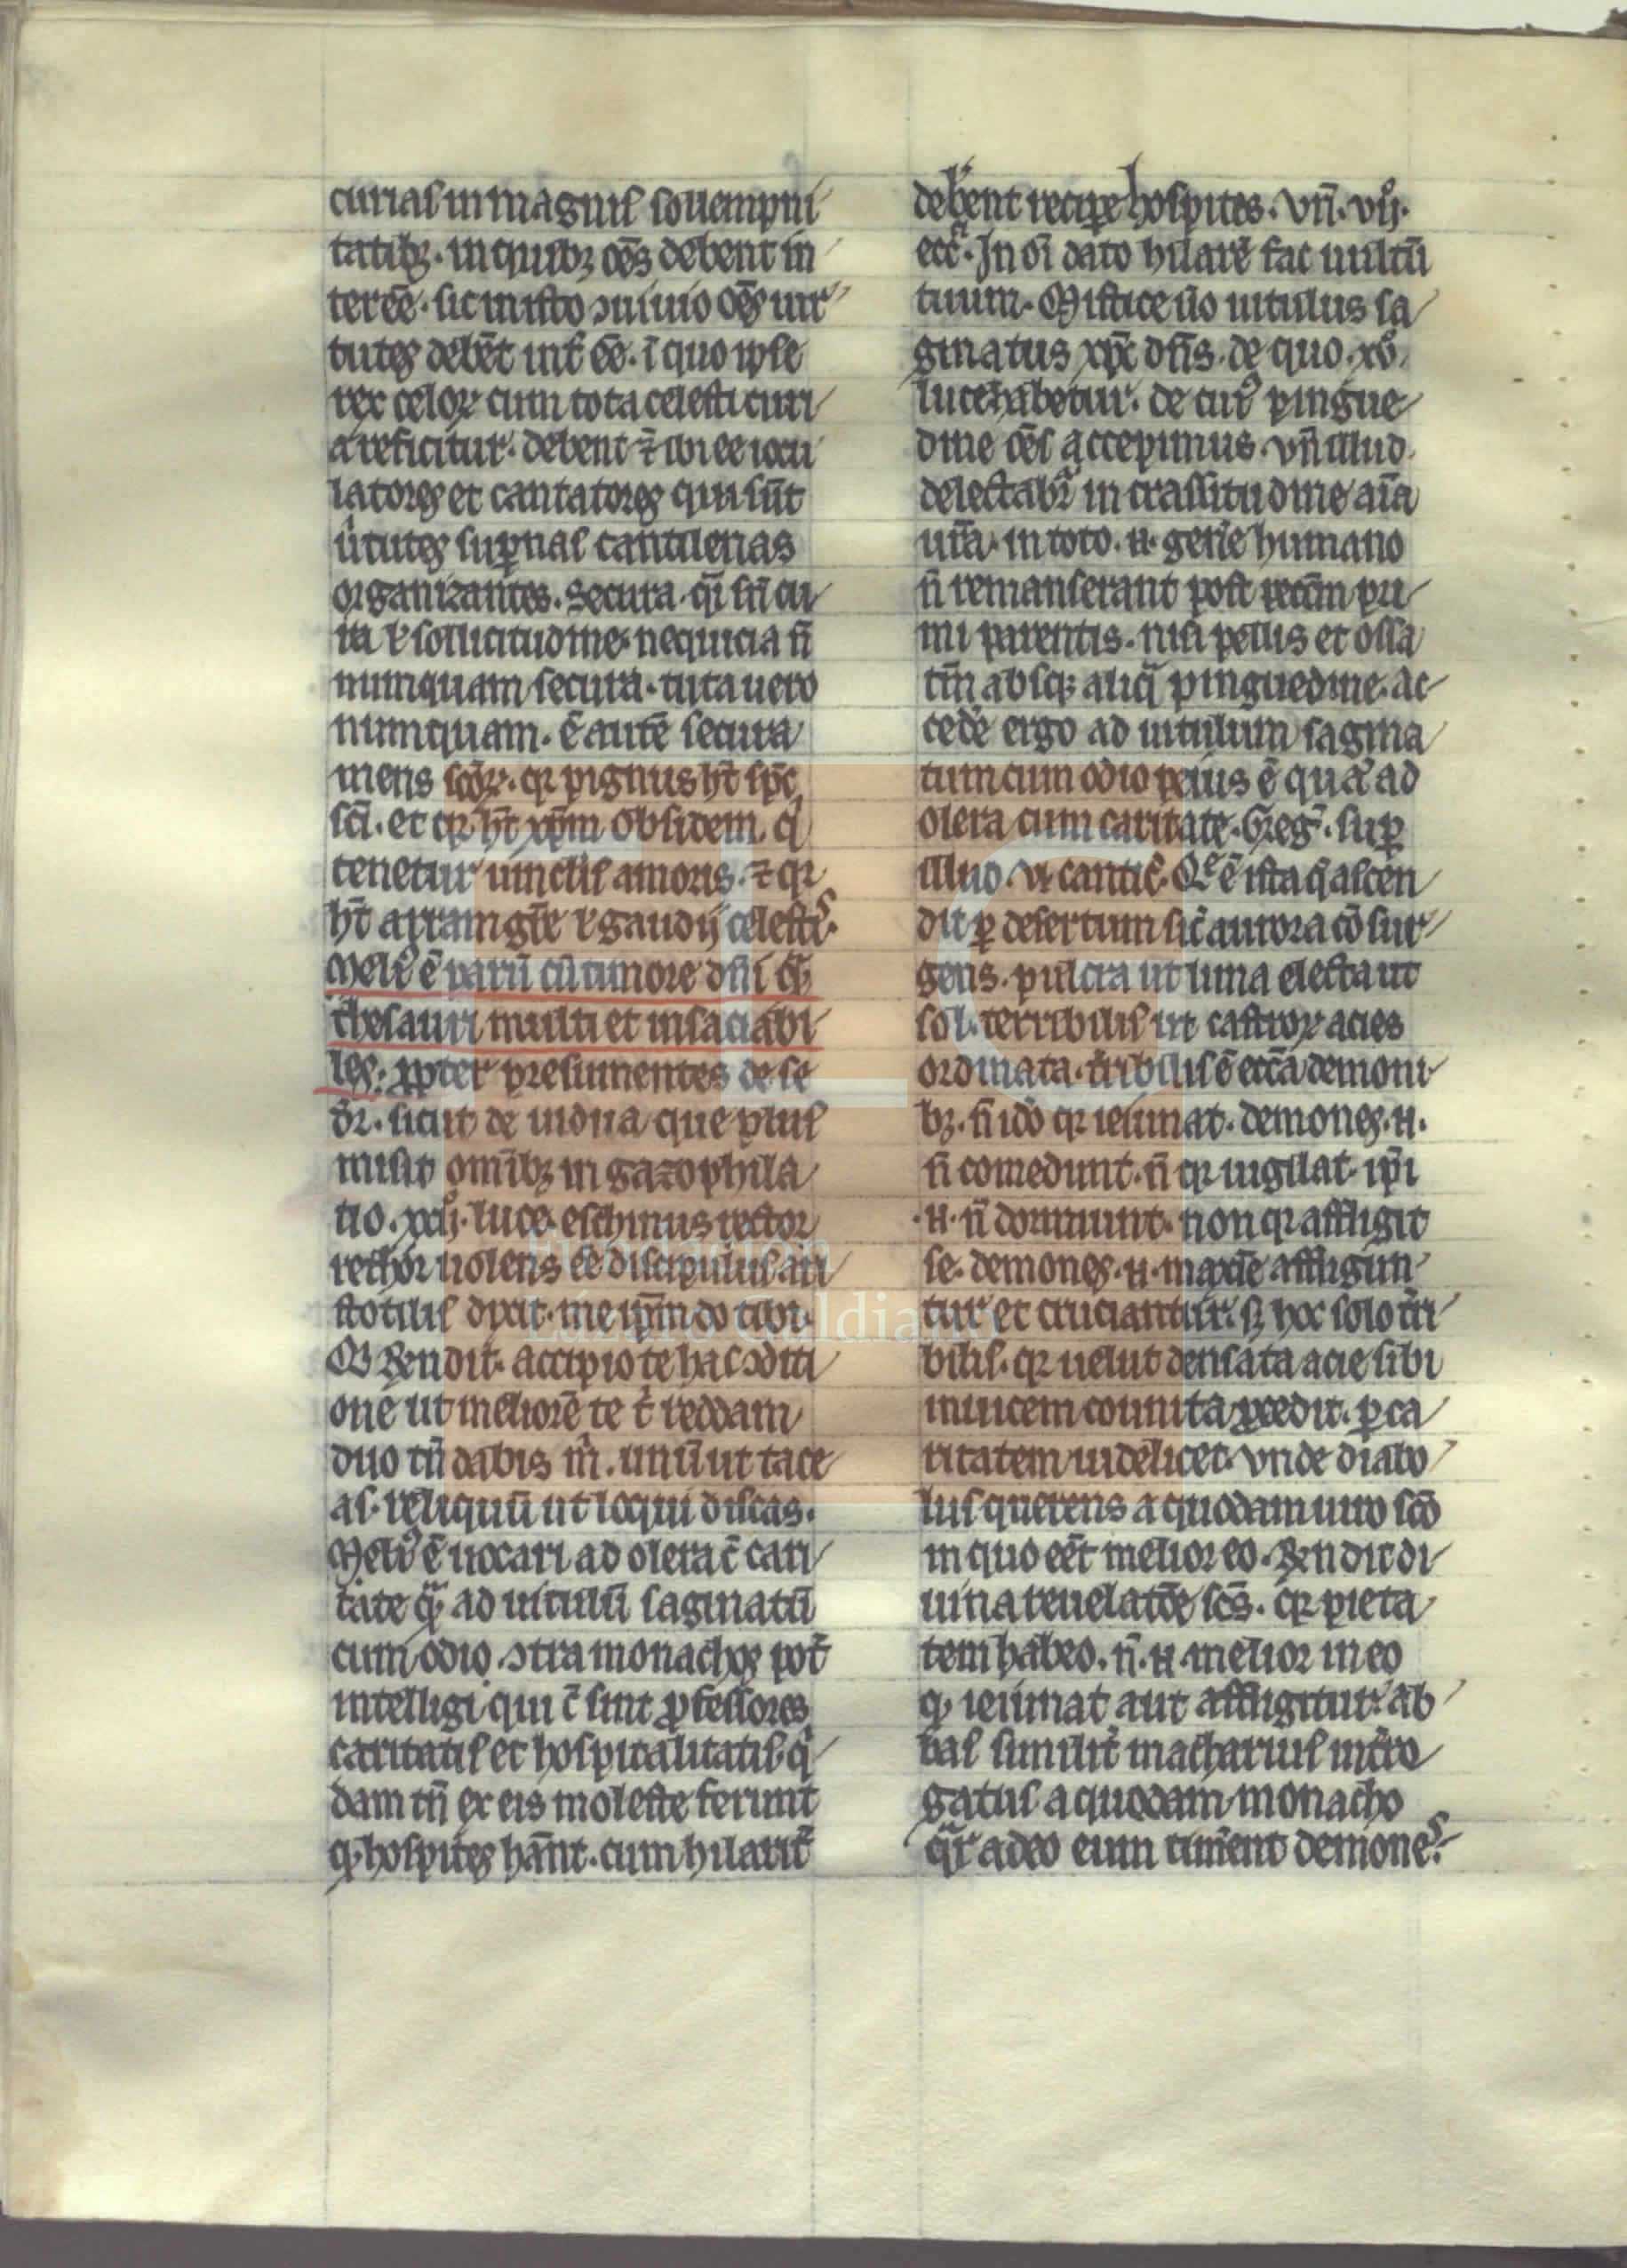 curias in magnis sollempni
tatibꝫ. in quibꝫ oēs debent in
ter eē. sic in isto ↄuiuio oēs uir
tutes debēt int̄ eē. ī quo ip̄e
rex celoꝝ cum tota celesti curi
a reficitur. debent ⁊ ibi eē iocu
latores et cantatores qui sūt
ũtutes sup̄nas cantilenas
organizantes. Secura. qͥ sn̄ cu
ra ⁊ sollicitudine. nequicia n̄
nunquam secura. tuta uero
nunquam. ē autē secura
mens scōꝝ. qꝛ pignus ht̄ sp̄c
sc̄i. et qꝛ ht̄ xp̄m obsidem. qͥ
tenetur uinclis amoris. ⁊ qꝛ
ht̄ arram gr̄e ⁊ gaudij celestis.
Meliꝰ ē parū cū timore dn̄i qͣꝫ
thesauri multi et insaciabi
les. ꝓpter presumentes de se
dr̄. sicut de uidua que plus
misit omībꝫ in gazophila
tio. xxij. luce. eschinus rector
rethor uolens eē discipulus ari
stotilis dixit. me ip̄m do tibi.
Qͥ Rn̄dit. accipio te hac ↄditi
one ut meliorē te t̄ reddam
duo tn̄ dabis m̄. unū ut tace
as. reliquū ut loqui discas.
Meliꝰ ē uocari ad olera c̄ cari
tate qͣꝫ ad uitulū saginatū
cum odio. ↄtra monachos pōt
intelligi qui c̄ sint ꝓfessores
caritatis et hospitalitatis. qͥ
dam tn̄ ex eis moleste ferunt
qͥ hospites hn̄t. cum hilarit̄
debent recipe hospites. vn̄. vij.
ecc̄i. In oī dato hilarē fac uultū
tuum. Mistice ũo uitulus sa
ginatus xp̄c dn̄s. de quo. xvͦ.
luce habetur. de cuiꝰ pingue
dine oēs accepimus. vn̄ illud.
delectabiͬ in crassitudine aīa
ur̄a. in toto. n. gen̄e humano
n̄ remanserant post pctm̄ pri
mi parentis. nisi pellis et ossa
tm̄ absqꝫ aliqͣ pinguedine. ac
cede ergo ad uitulum sagina
tum cum odio peius ē quā ad
olera cum caritate. Greg̃. suꝑ
illud. vi. cantic̄. Qͤ ē ista qͣ ascen
dit ꝑ desertum sic̄ aurora ↄ̄sur
gens. pulcra ut luna electa ut
sol. terribilis ut castroꝝ acies
ordinata. t̄ribilis ē ecc̄a demoni
bꝫ. n̄ ido qꝛ ieiunat. demones. n.
n̄ comedunt. n̄ qꝛ uigilat. ip̄i
.n. n̄ dormiunt. non qꝛ affligit
se. demones. n. maxīe affligun
tur et cruciantur. sꝫ hoc solo t̄ri
bilis. qꝛ uelut densata acie sibi
inuicem counita ꝓcedit. ꝑ ca
ritatem uidelicet. vnde diabo
lus querens a quodam uiro sc̄o
in quo eēt melior eo. Rn̄dit di
uina reuelatōe sc̄s. qꝛ pieta
tem habeo. n̄. n. melior in eo
qͥ ieiunat aut affligitur. ab
bas similit̄ macharius int̄ro
gatus a quodam monacho
qͣr̄ adeo eum timent demones.